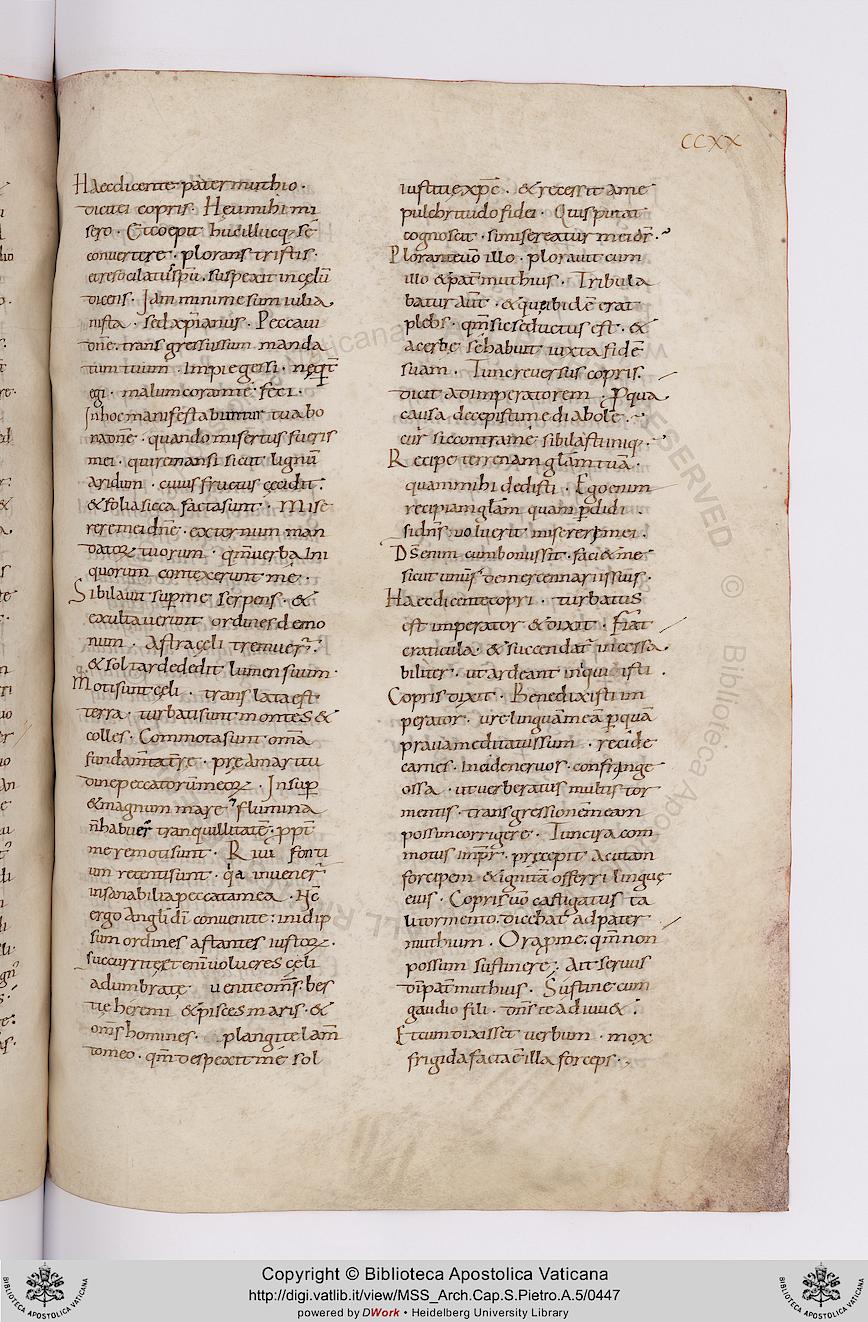 CCXX
Haec dicente pater muthio ·
dicit ei copris · Heu mihi mi
sero · Et coepit huc illucq; se
convertere · plorans tristis ·
et resocilatus spu͂ · suspexit in cęlu͂
dicens · Jam minime sum iulia
nista · sed xp͂ianus · Peccavi
dn͂e · transgressus sum manda
tum tuum · impie gessi · neq͂
egi · malum coram te feci ·
In hoc manifestabuntur tua bo
na dn͂e · quando misertus fueris
mei · qui remansi sicut lignu͂
aridum · cuius fructus cecidit ·
& folia sicca facta sunt · Mise
rere mei dn͂e · exterminum man
datoꝝ tuorum · qm͂ verba ini
quorum contexerunt me ·
Sibilavit sup me serpens · &
exultaverunt ordines demo
num · Astra cęli tremuer͂ ·
& sol tarde dedit lumen suum ·
Moti sunt cęli · translata est
terra · turbati sunt montes &
colles · Commota sunt om͂a
fundam͂ta t͂rę · prę amaritu
dine peccatoru͂ meoꝝ · Insup
& magnum mare & flumina
n͂ habuer͂ tranquillitate͂ · ppt͂
me remoti sunt · Rivi fonti
um retenti sunt · q͂a invener͂
insanabilia peccata mea · Hc͂
ergo Angli di͂ convenite : in id ip
sum ordines astantes iustoꝝ ·
succurrite et em͂ volucres cęli
adumbrate · venite om͂s bes
tię heremi & pisces maris · &
om͂s homines · plangite lam͂
tomeo · qm͂ despexit me sol
iustitię xpc͂ · & recessit a me
pulchritudo fidei · Quis putat
cognoscit · si misereatur mei ds͂ ·
Plorante vo͂ illo · ploravit cum
illo & pat͂ muthius · Tribula
batur aut͂ · & quę ibide͂ erat
plebs · qm͂ sic seductus est · &
acerbe se habuit iuxta fide͂
suam · Tunc reversus copris ·
dicit ad imperatorem · P qua
causa decepisti me diabole ·
cur sic contra me sibilasti iniq; ·
Recipe terrenam glam͂ tua͂ ·
quam mihi dedisti · Ego enim
recipiam glam͂ quam pdidi ·
si dn͂s voluerit misereri mei ·
Ds͂ enim cum bonus sit · faciet me
sicut unu͂ de mercennariis suis ·
Haec dicente copri · turbatus
est imperator & dixit · Fiat
craticula · & succendat͂ incessa
biliter · ut ardeant iniqui isti ·
Copris dixit · Benedixisti im
perator · ure lingua͂ mea͂ p qua͂
prava meditatus sum · recide
carnes · incide nervos · confringe
ossa · ut verberatus multis tor
mentis · transgressione͂ meam
possim corrigere · Tunc ira com
motus imp͂r · pręcepit acutam
forcipem & ignita͂ offerri linguę
eius · Copris vo͂ castigatus ta
li tormento · dicebat ad pater
muthium · Ora p me · qm͂ non
possum sustinere · Ait servus
di͂ pat͂ muthius · Sustine cum
gaudio fili · dn͂s te adiuv& ·
Et cum dixisset verbum · mox
frigida facta e͂ illa forceps ·
Copyright © Biblioteca Apostolica Vaticana
http://digi.vatlib.it/view/MSS_Arch.Cap.S.Pietro.A.5/0447
powered by DWork • Heidelberg University Library